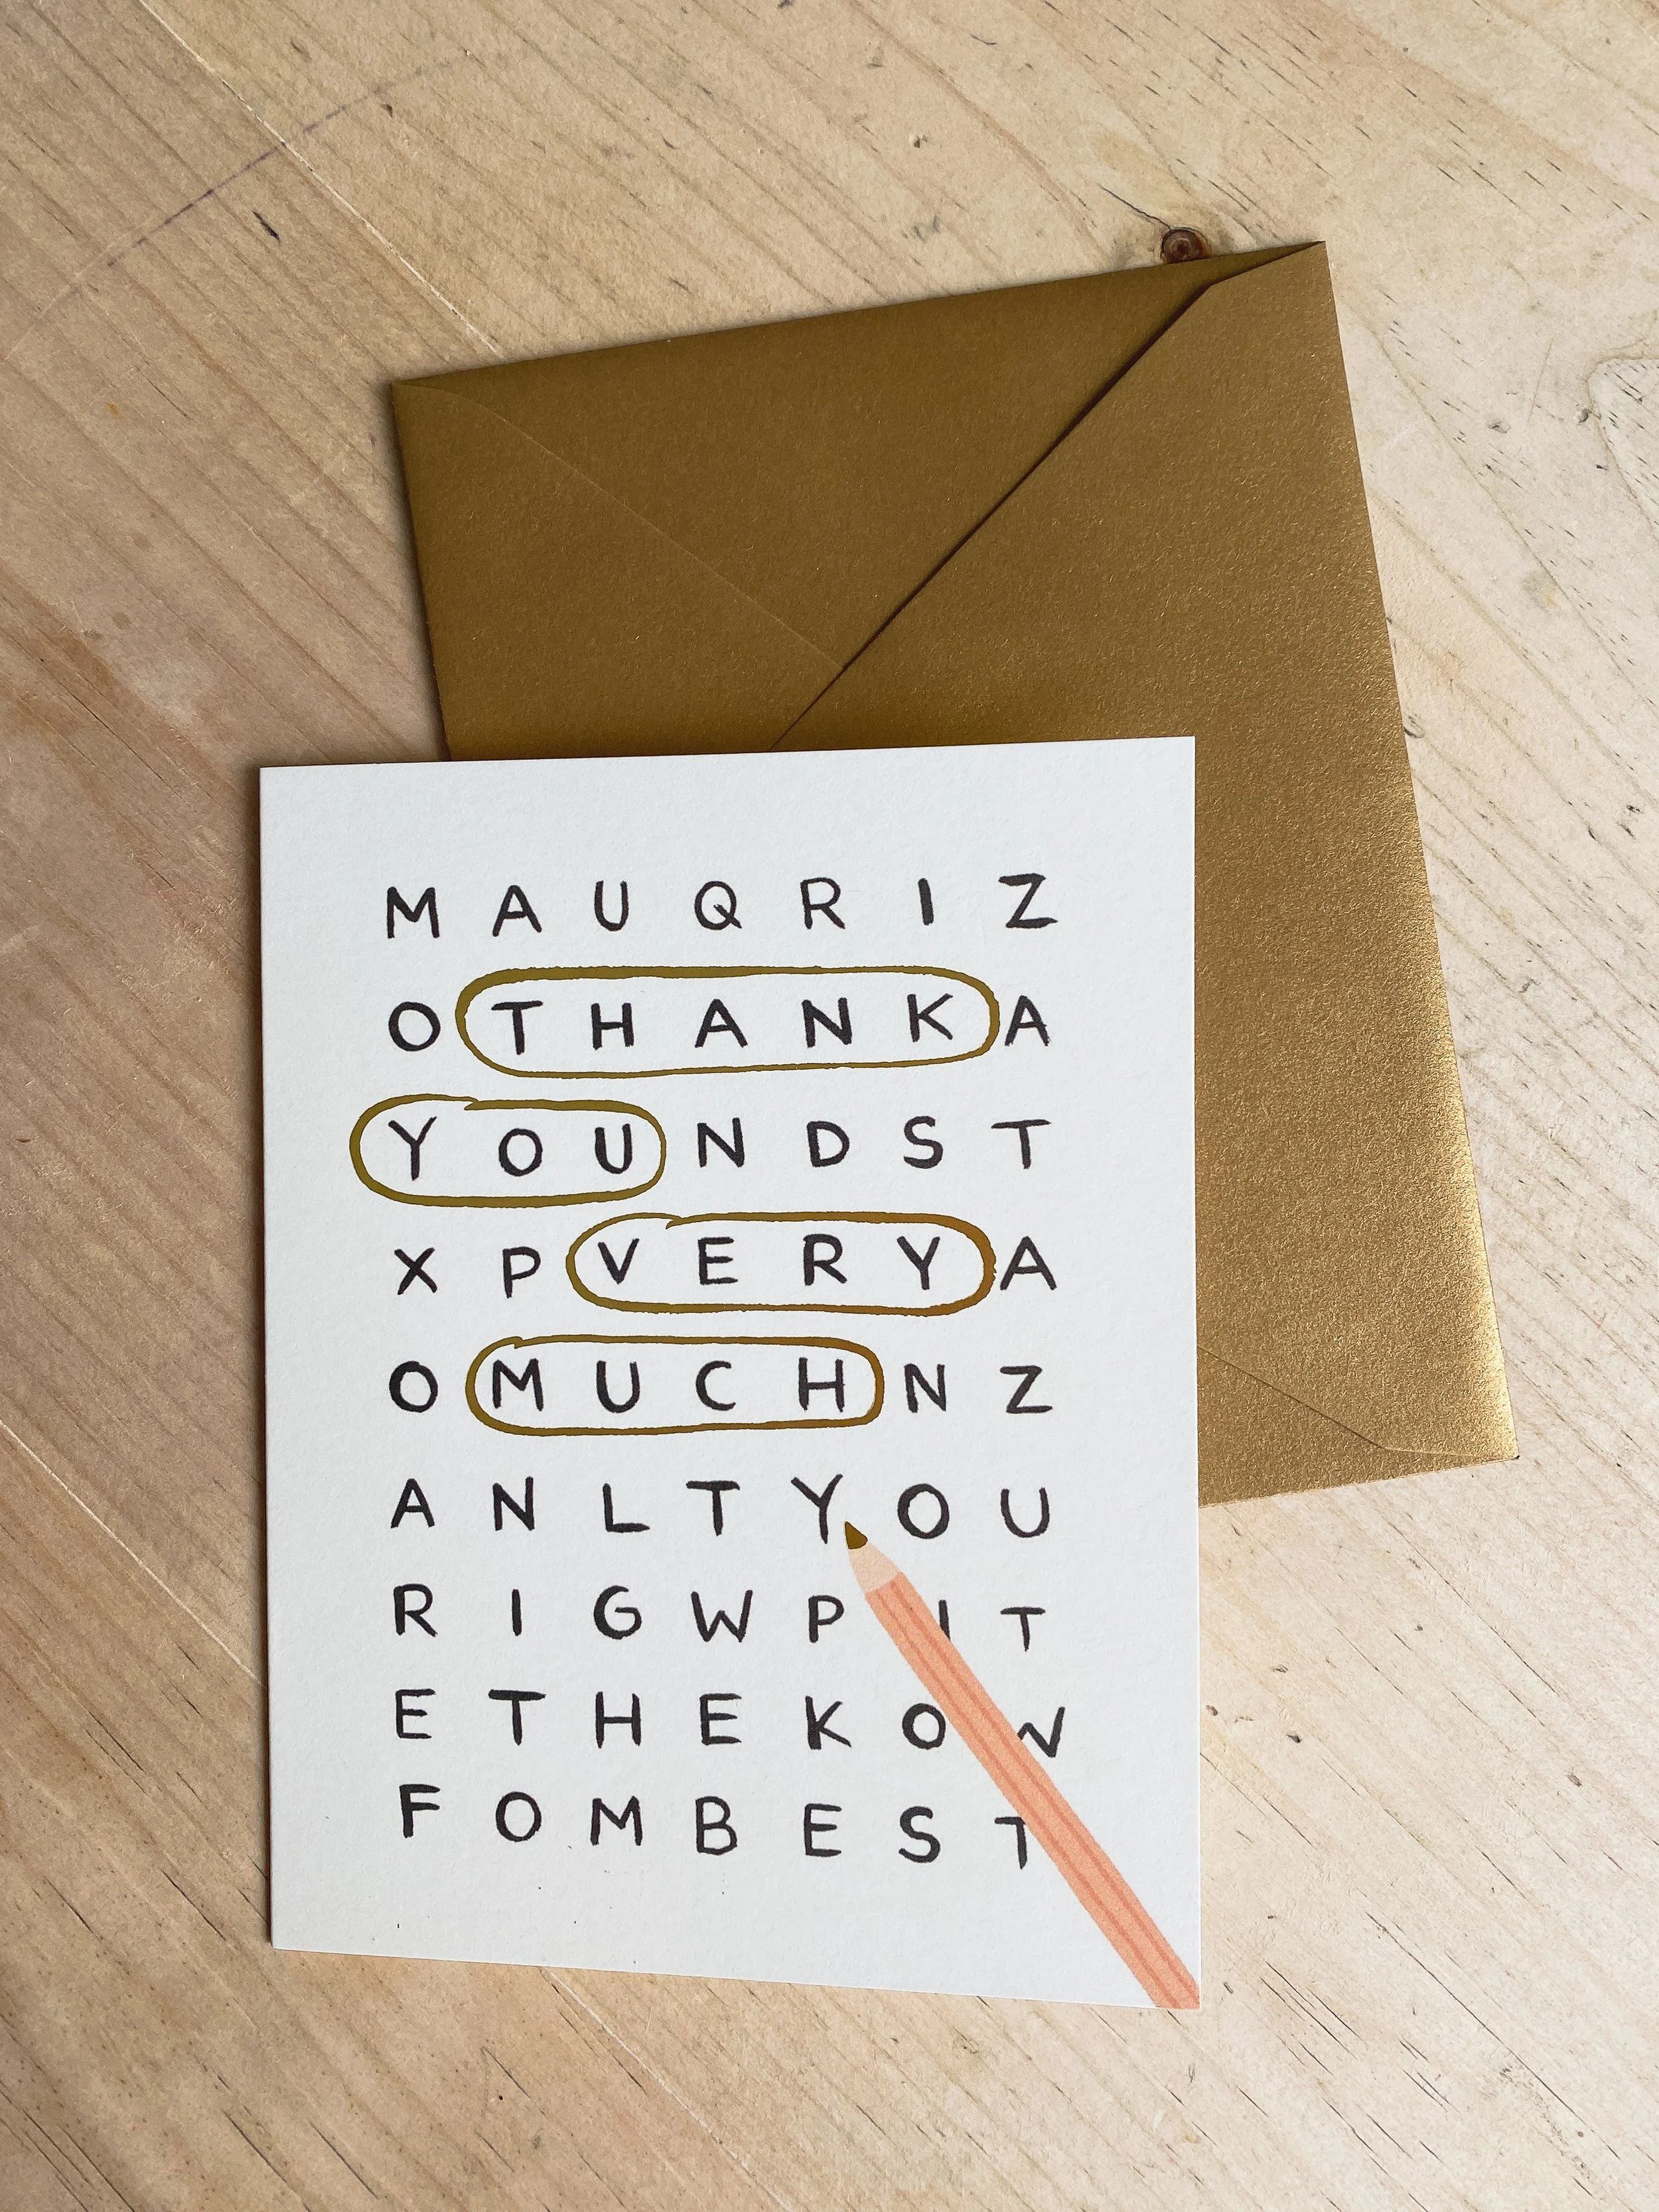 M A U Q R I Z
O T H A N K A
Y O U N D S T
X P V E R Y A
O M U C H N Z
A N L T Y O U
R I G W P I T
E T H E K O W
F O M B E S T